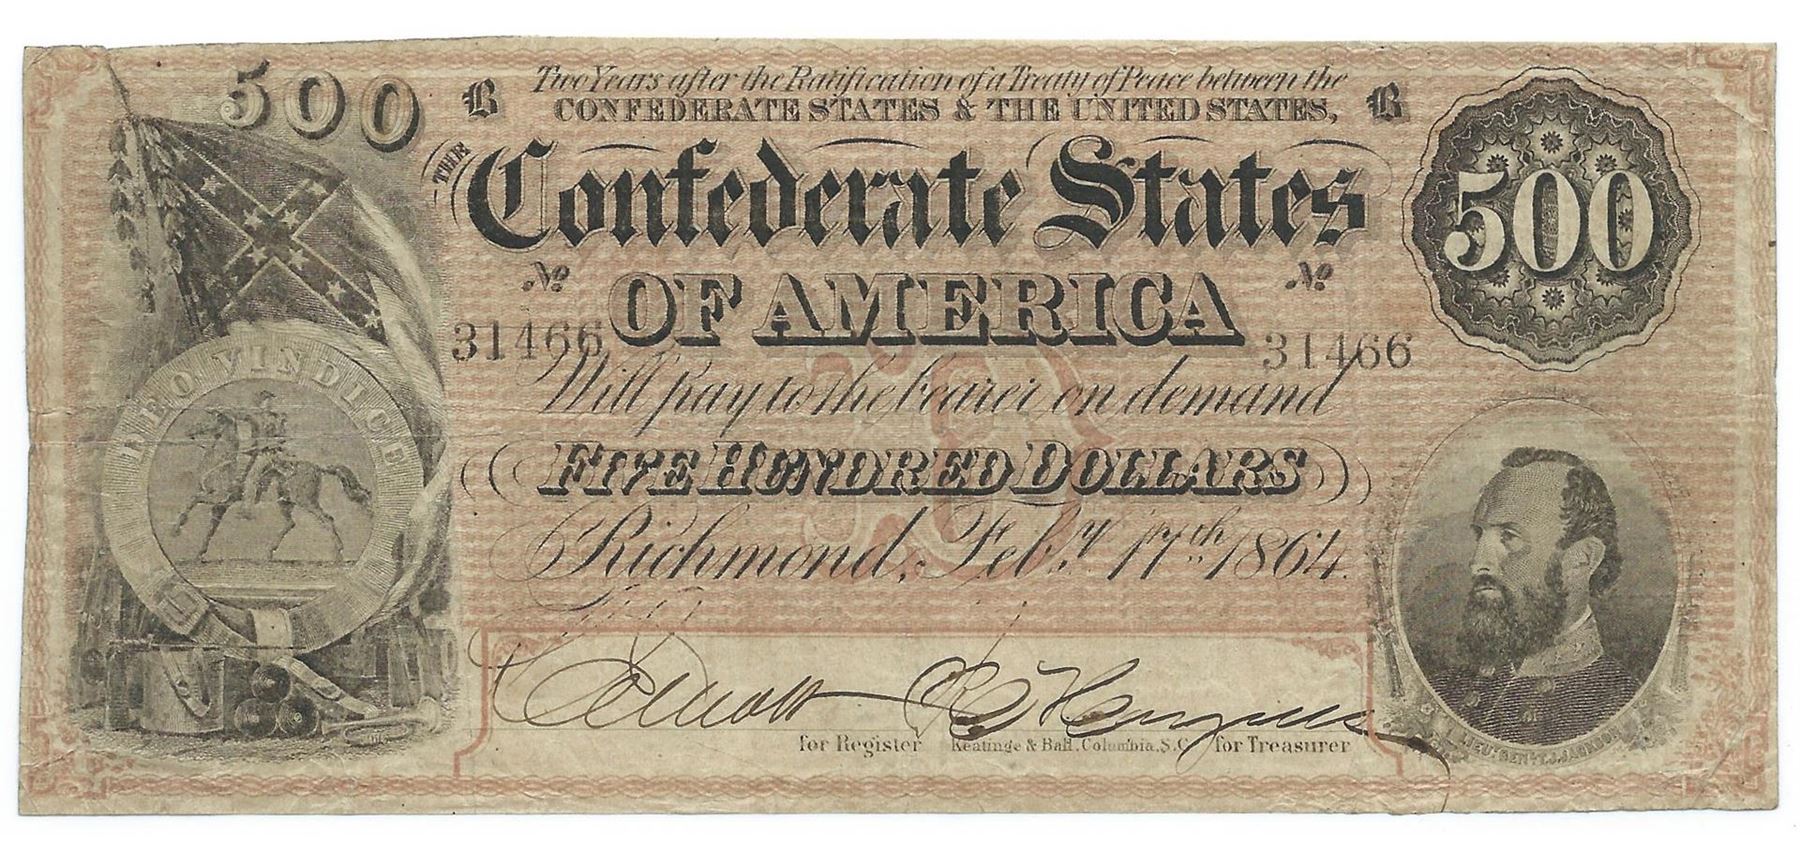 500
B Two Years after the Ratification of a Treaty of Peace between the B
CONFEDERATE STATES & THE UNITED STATES,
THE Confederate States
500
Nº OF AMERICA Nº
31466 31466
Will pay to the bearer on demand
DEO VINDICE
FIVE HUNDRED DOLLARS
Richmond, Feby. 17th 1864.
for Register Keatinge & Ball, Columbia, S.C. for Treasurer
LIEUT. GEN. T.J. JACKSON